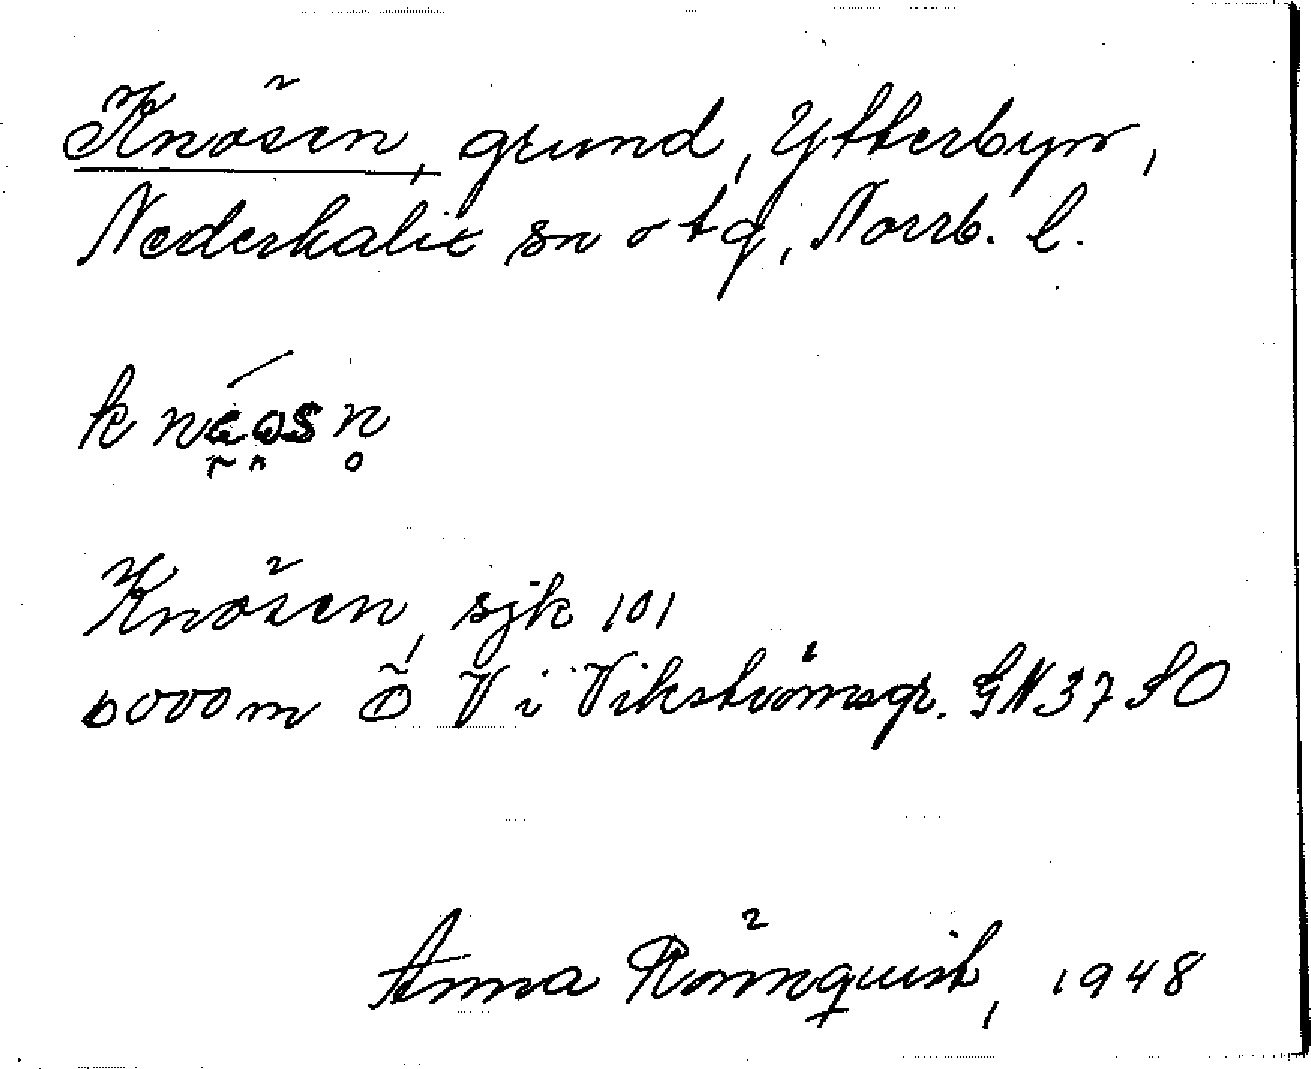 Knösen, grund, Ytterbyn,
Nederkalix sn o tg, Norrb. l.
Knösen, sjk 101
6000 m Ö V i Vikströmsgr. GN 37 SO
Anna Rönnquist, 1948